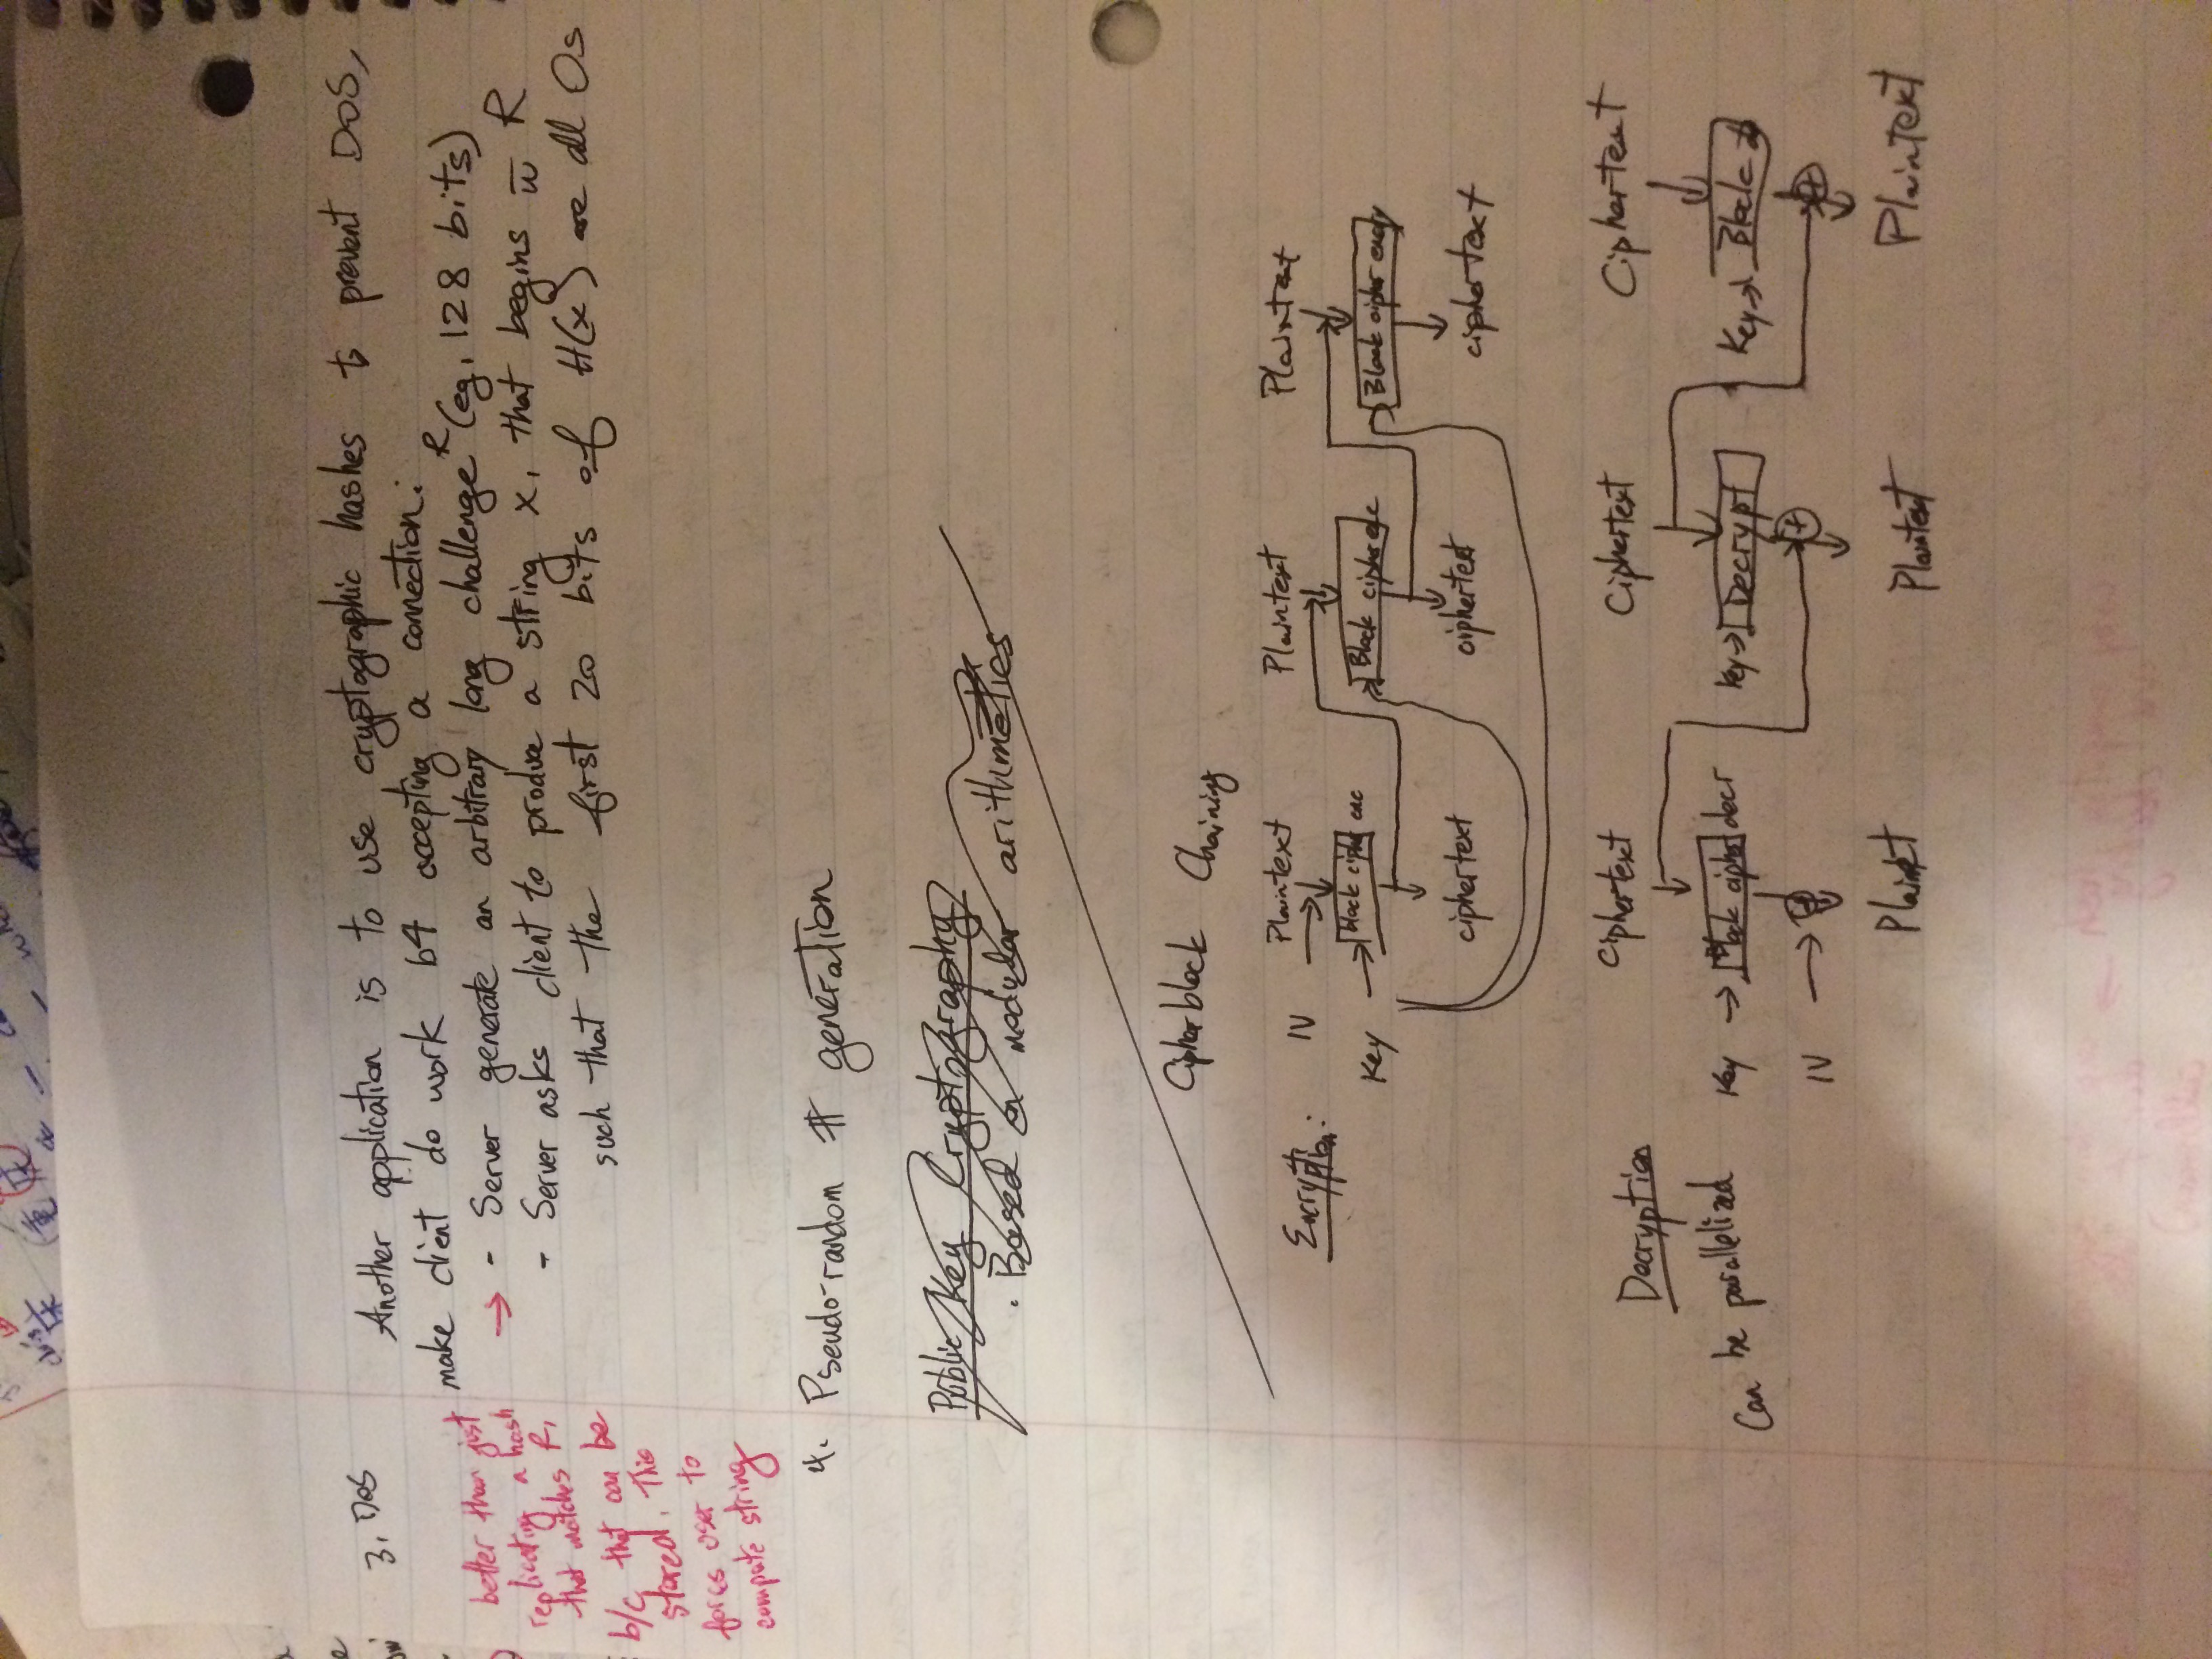 3. DoS
Another application is to use cryptographic hashes to prevent DOS,
make client do work b4 accepting a connection:
- Server generate an arbitrary long challenge R (eg, 128 bits)
- Server asks client to produce a string x, that begins w̅ R
such that the first 20 bits of H(x) are all 0s
better than just
replicating a hash
that matches R,
b/c that can be
stored. This
forces user to
compute string
→
4. Pseudo-random # generation
Public Key Cryptography
. Based on modular arithmetics
Cipherblock Chaining
Encryption:
IV
Plaintext Plaintext Plaintext
Key
Block cipher enc Block cipher enc Block cipher
ciphertext ciphertext ciphertext
Decryption
Can be parallelized
Ciphertext Ciphertext Ciphertext
Key Block cipher decr Key Decrypt Key Block
IV + + +
Plaintext Plaintext